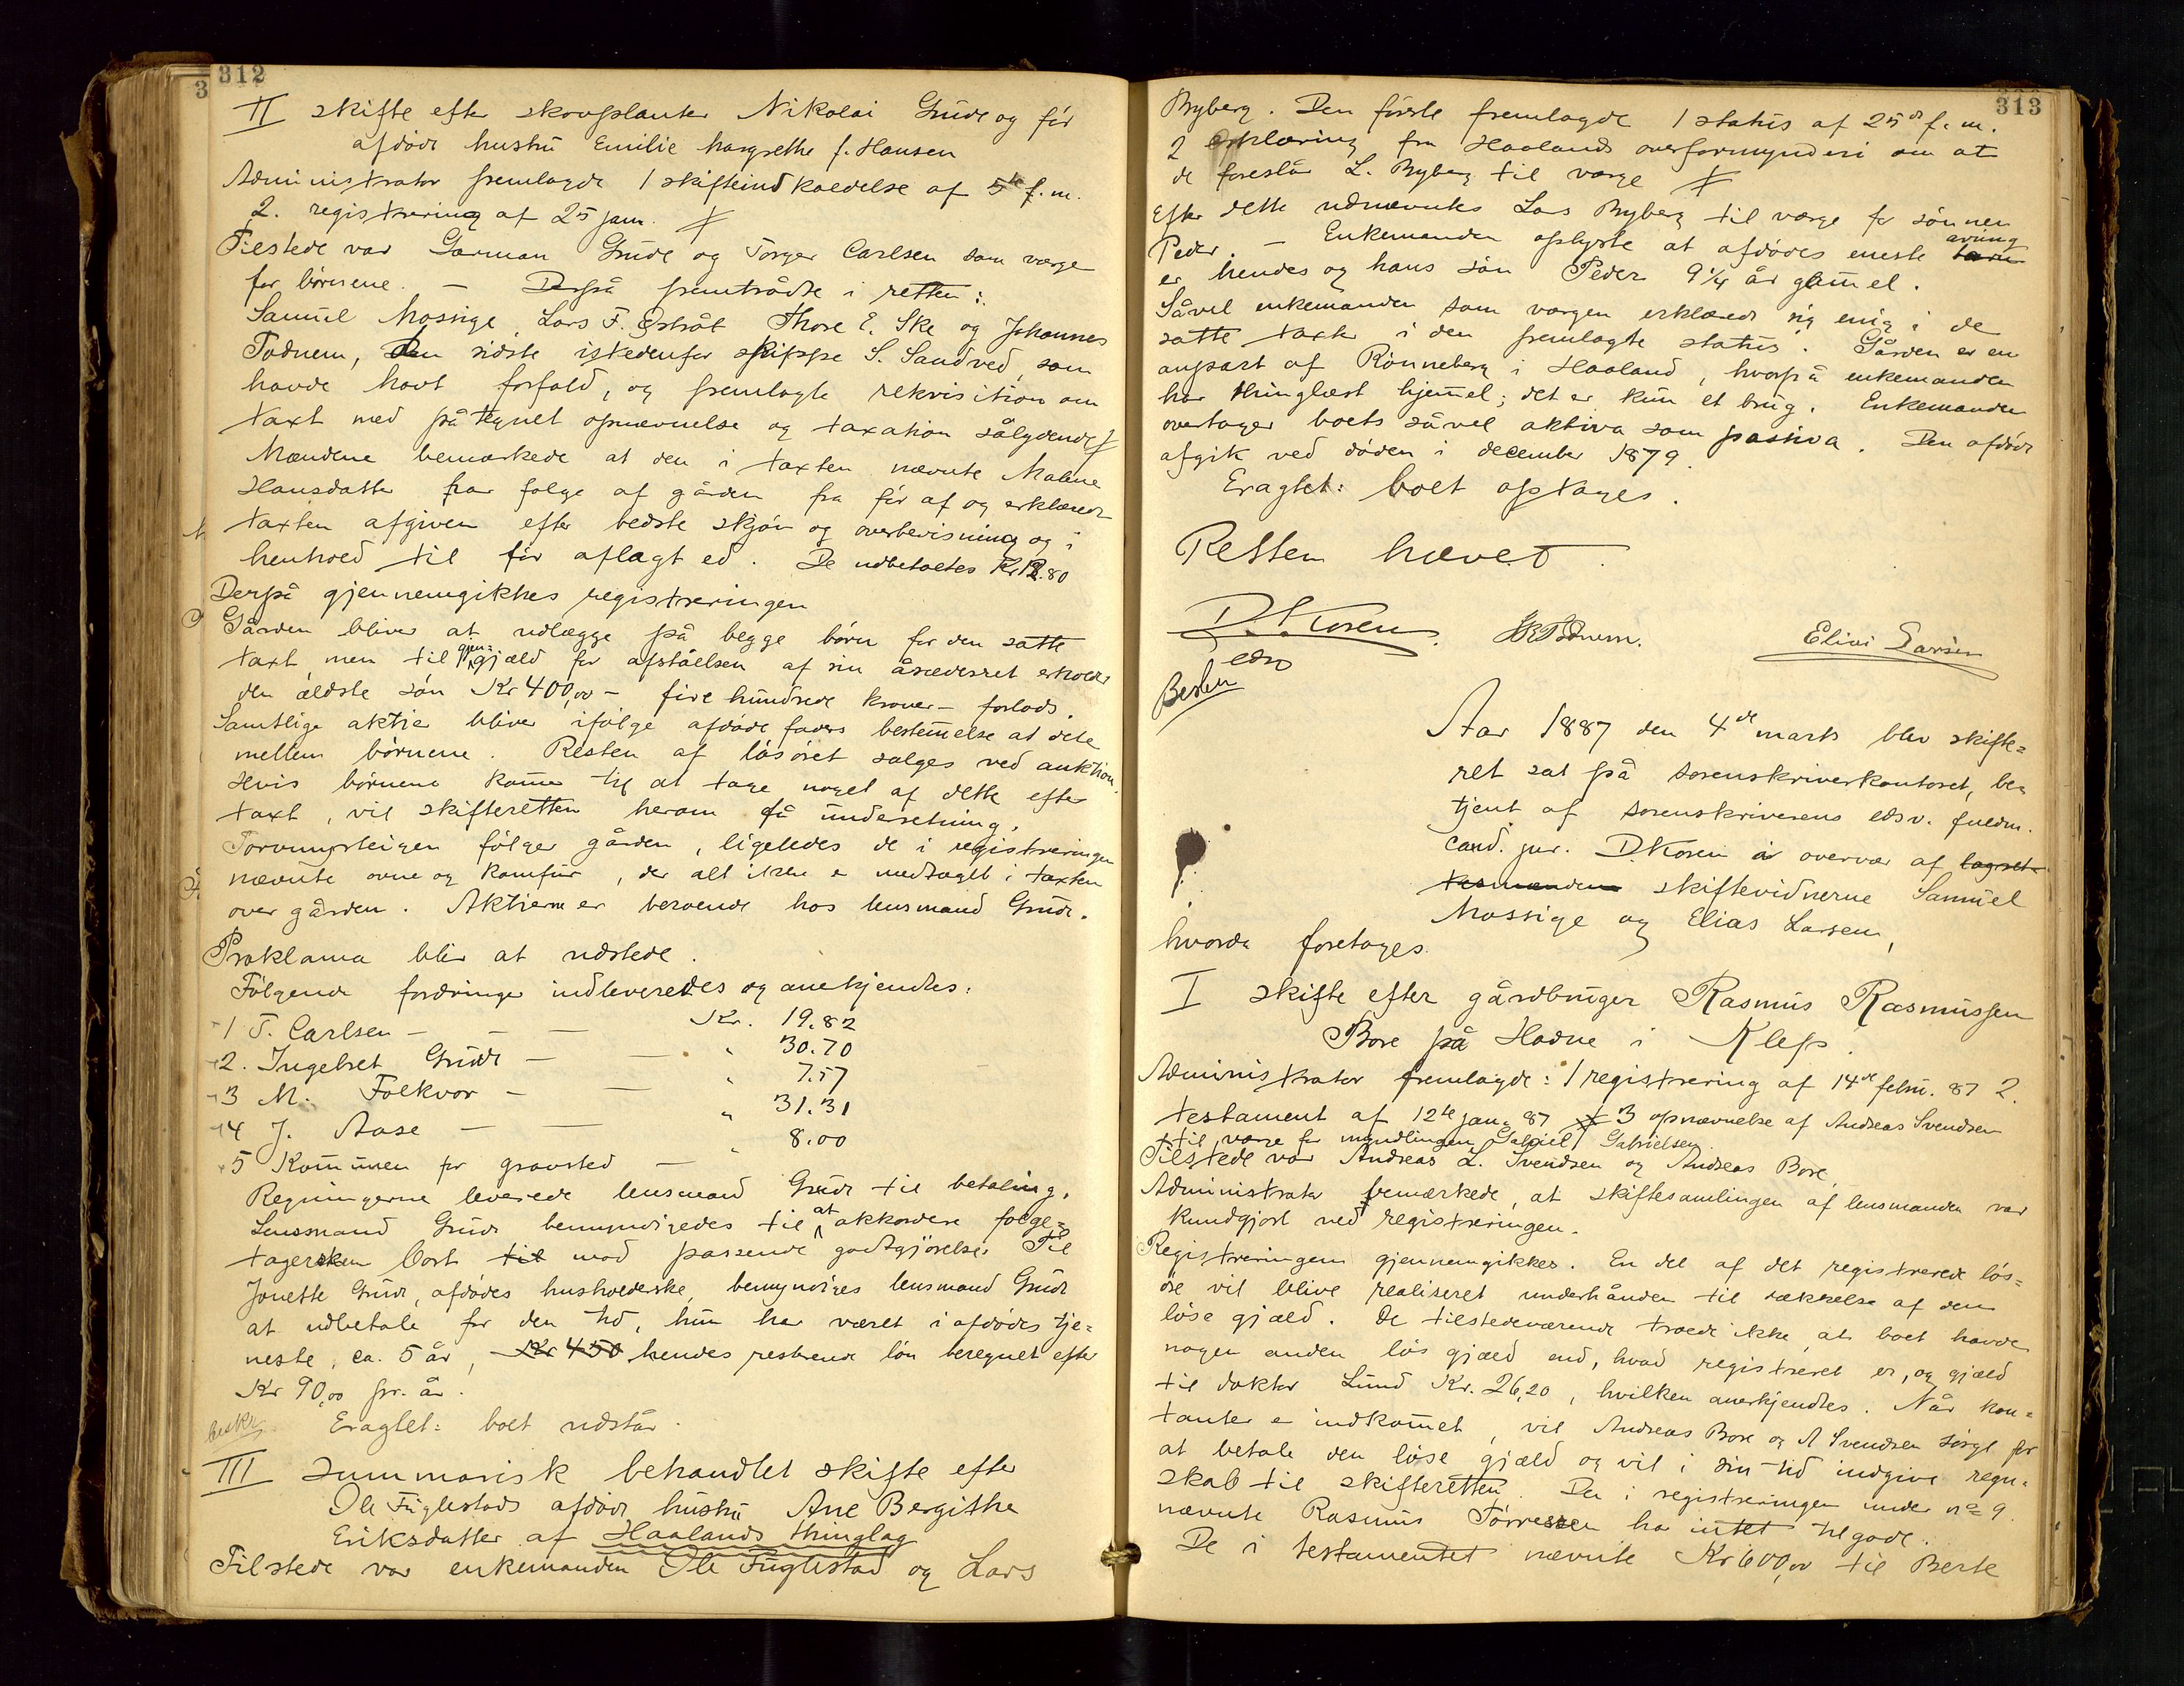 312
3
II skifte efter skovplanter Nikolai Grude og før
afdøde hustru Emilie Margrethe f. Hansen
Administrator fremlagde 1 skifteindkaldelse af 5te f.m.
2. registrering af 25 jan. ⨍
Tilstede var Garman Grude og Torger Carlsen som værge
for børnene. — Derpå fremtrådte i retten:
Samuel Mossige, Lars F. Østråt Thore E. Ske og Johannes
Todnem, den sidste istedenfor S. Sandved, som
havde havt forfald, og fremlagte rekvisition om
taxt med påtegnet opnævnelse og taxation sålydende ⨍
Mændene bemærkede at den i taxten nævnte Malene
Hansdatter har følge af gården fra før af og erklærede
taxten afgiven efter bedste skjøn og overbevisning og i
henhold til før aflagt ed. De udbetaltes Kr 12.80
Derpå gjennemgikkes registreringen
Gården bliver at udlægge på begge børn for den satte
taxt men til gjen=gjæld for afståelsen af sin åsædesret erholder
den ældste søn Kr 400,00 — fire hundrede kroner — forlods.
Samtlige aktier bliver ifølge afdøde faders bestemelse at dele
mellem børnene. Resten af løsøret sælges ved auktion.
Hvis børnene komer til at tage noget af dette efter
taxt, vil skifteretten herom få underretning.
Torvmyrteigen følger gården, ligeledes de i registreringen
nævnte ovne og komfur, der alt ikke er medtaget i taxten
over gården. Aktierne er beroende hos lensmand Grude.
Proklama blir at udstede.
Følgende fordringer indleveredes og anerkjendtes:
1 T. Carlsen — — — Kr. 19.82
2. Ingebret Grude — — " 30.70
3 M. Folkvor — — " 7.57
4 J. Aase — — " 31.31
5 Kommunen for gravsted — " 8.00
Regningerne leverede lensmand Grude til betaling.
Lensmand Grude bemyndigedes til at akkordere følge=
tagersken bort til mod passende godtgjørelse. Til
Jonette Grude, afdødes husholderske, bemyndiges lensmand Grude
at udbetale for den tid, hun har været i afdødes tje=
neste, ca. 5 år, Kr 450 hendes resterende løn beregnet efter
Kr 90,00 pr. år.
beskr.
Eragtet: boet udstår.
III summarisk behandlet skifte efter
Ole Fuglestads afdøde hustru Ane Bergithe
Eriksdatter af Haalands thinglag
Tilstede var enkemanden Ole Fuglestad og Lars
313
Byberg. Den første fremlagde 1 status af 25de f.m.
2 erklæring fra Haalands overformynderi om at
de foreslår L. Byberg til værge ⨍
Efter dette udnævntes Lars Byberg til værge for sønnen
Peder. — Enkemanden oplyste at afdødes eneste arving
er hendes og hans søn Peder 9 1/4 år gamel.
Såvel enkemanden som værgen erklærede sig enig i de
satte taxter i den fremlagte status. Gården er en
anpart af Rønneberg i Haaland, hvorpå enkemanden
har thinglæst hjemel; det er kun et brug. Enkemanden
overtager boets såvel aktiva som passiva. Den afdøde
afgik ved døden i december 1879.
Eragtet: boet optages.
Retten hævet.
D. Koren
edsv
Beskr
JRTodnem.
Elias Larsen
Aar 1887 den 4de marts blev skifte=
ret sat på sorenskriverkontoret, be=
tjent af sorenskriverens edsv. fuldm.
cand. jur. D. Koren i overvær af lagret
tesmændene skiftevidnerne Samuel
Mossige og Elias Larsen,
hvorda foretages.
I skifte efter gårdbruger Rasmus Rasmussen
Bore på Hodne i Klep.
Administrator fremlagde: 1 registrering af 14de febru. 87 2.
testament af 12te jan. 87 ⨍ 3 opnævnelse af Andreas Svendsen
til værge for myndlingen Gabriel Gabrielsen.
Tilstede var Andreas L. Svendsen og Andreas Bore.
Administrator bemærkede, at skiftesamlingen af lensmanden var
kundgjort ved registreringen.
Registreringen gjennemgikkes. En del af det registrerede løs=
øre vil blive realiseret underhånden til dækkelse af den
løse gjæld. De tilstedeværende troede ikke at boet havde
nogen anden løs gjæld end, hvad registreret er, og gjæld
til doktor Lund Kr. 26,20, hvilken anerkjendtes. Når kon=
tanter er indkomet, vil Andreas Bore og A Svendsen sørge for
at betale den løse gjæld og vil i sin tid indgive regn=
skab til skifteretten. Den i registreringen under no 9
nævnte Rasmus Tørressen har intet tilgode.
De i testamentet nævnte Kr 600,00 til Berte